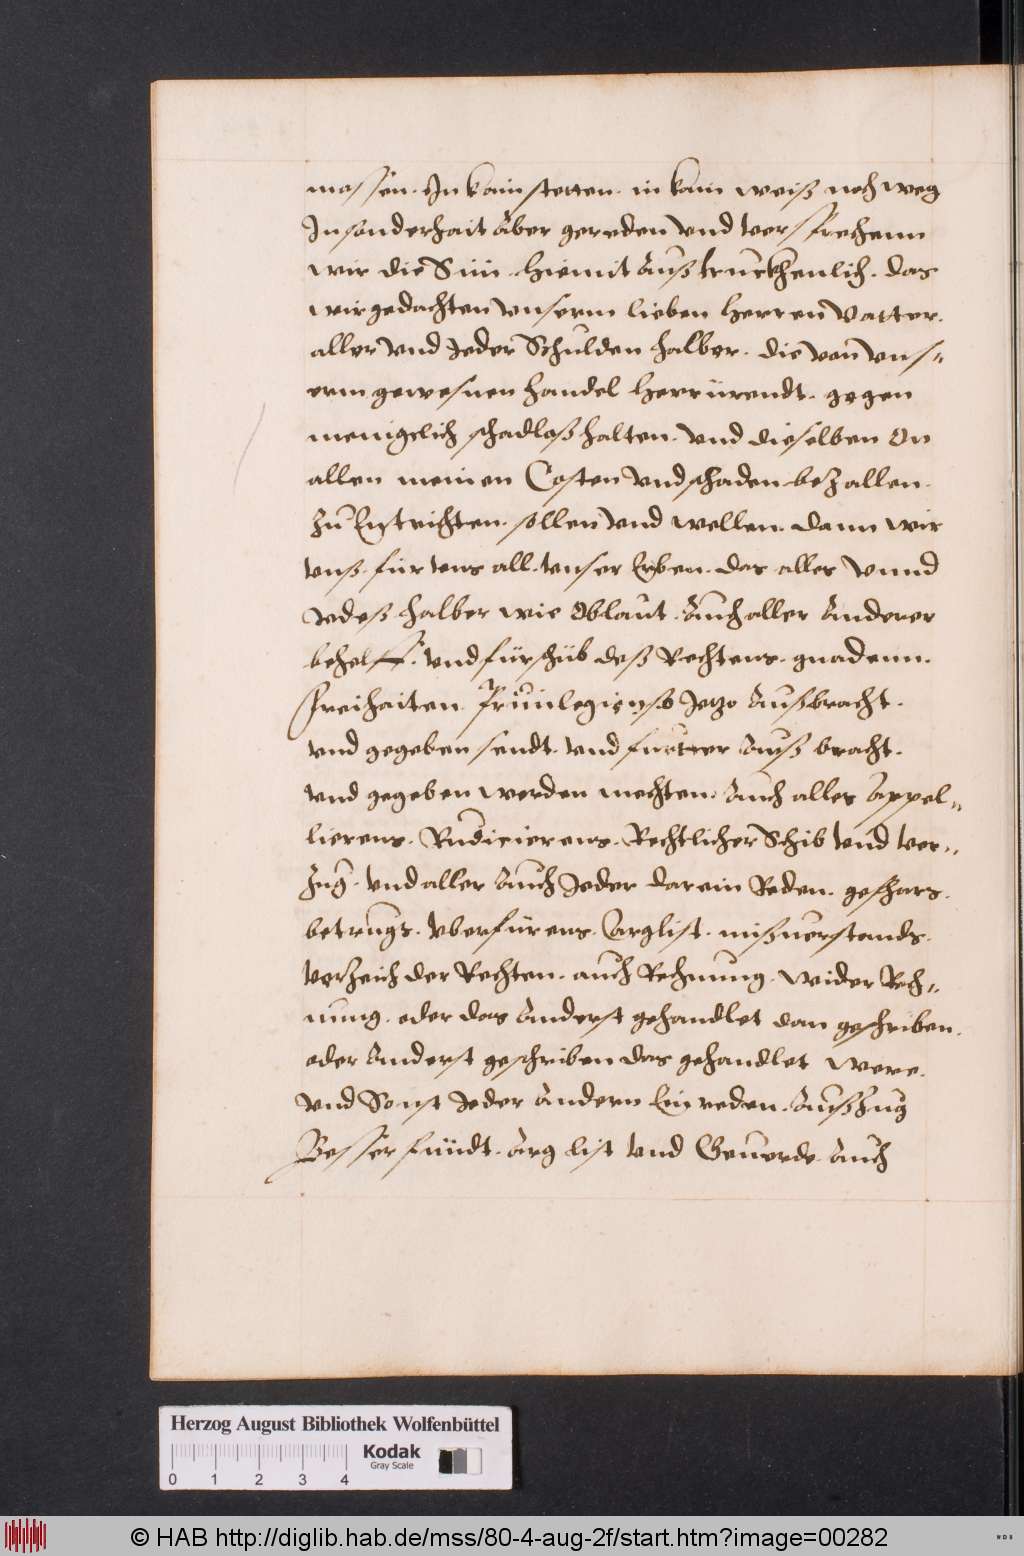 massen. In kain stetten. in kain weiß noch weg
Insonderhait aber gereden vnd versprechenn
wir die Sün. hiemit außtruckhenlich. das
wir gedachten vnserm lieben herren Vatter.
aller vnd Jeder Schulden halber. die von vns=
erm gewesnen handel herrürendt. gegen
menigclich schadlaß halten. vnd dieselben on
allen meinen Costen vnd schaden bezallen.
zu Entrichten. sollen vnd wellen. dann wir
vnß. für vns all. vnser Erben. das alles vnnd
Jdeß halber wie oblaut. Auch aller anderer
behelff. vnd fürschüb deß Rechtens. gnadenn.
freihaiten. Priuilegien so Jetzo außbracht.
vnd gegeben sendt. vnd furtter auß bracht.
vnd gegeben werden mechten. Auch alles appel=
lierens. Reducierens. Rechtlicher Schib vnd ver=
zug. vnd aller auch Jeder darein Reden. gefhars.
betrugs. vberfürens. Carglist. mißuerstands.
verzeich der Rechten. auch Rechnung. wider Rech=
nung. oder das anderst gehandlet dan geschriben.
oder anderst geschriben das gehandlet were.
vnd Sonst Jeder andern Einreden. Außzug
Besser fündt. Arg list vnd Geuerde. Auch
Herzog August Bibliothek Wolfenbüttel
Kodak
Gray Scale
0 1 2 3 4
© HAB http://diglib.hab.de/mss/80-4-aug-2f/start.htm?image=00282